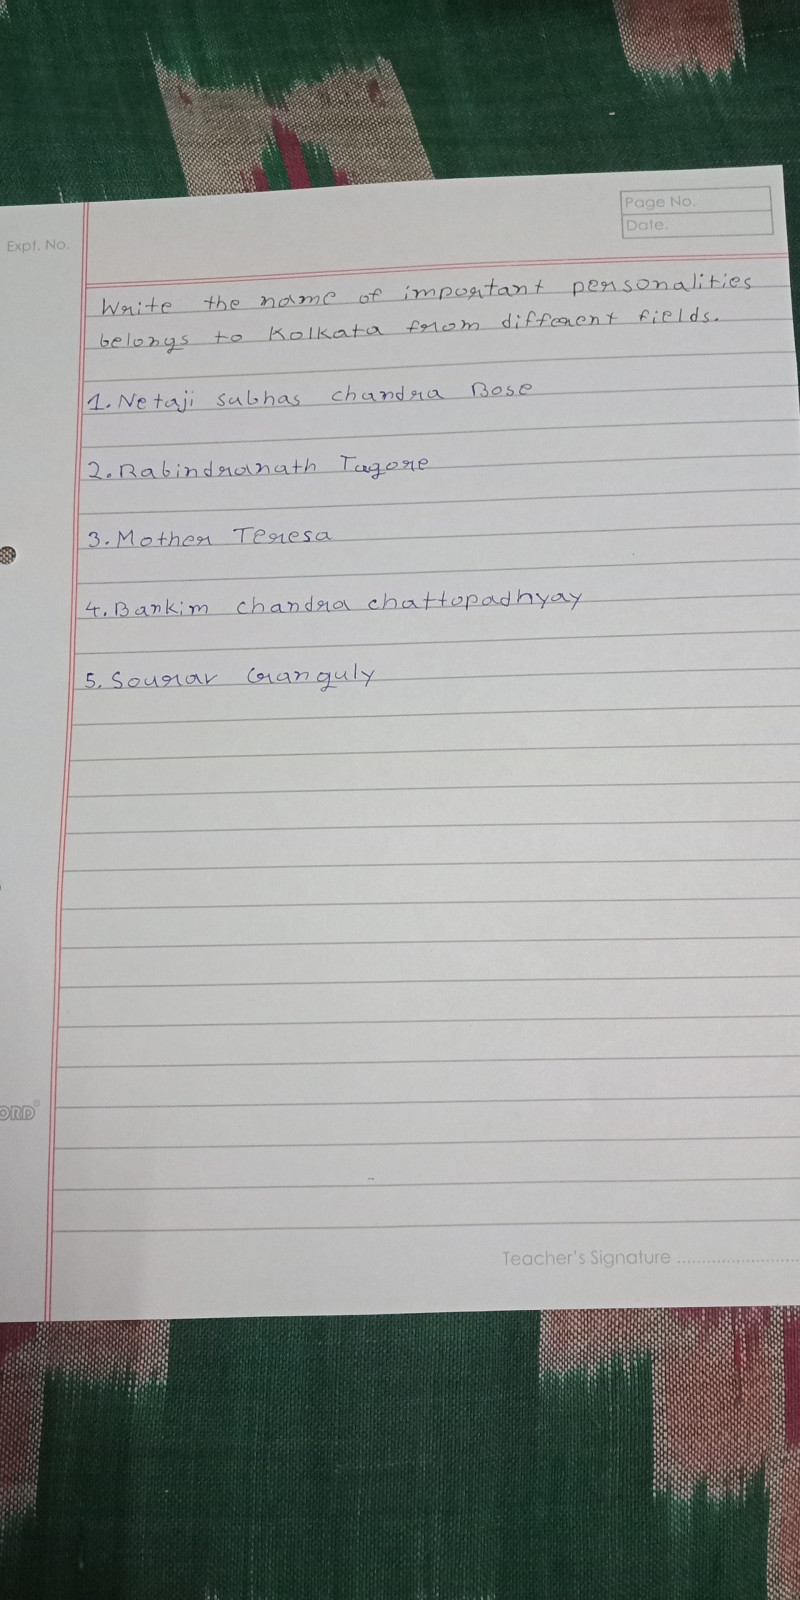 Page No.
Date.
Expt. No.
Write the name of important personalities
belongs to Kolkata from different fields.
1. Netaji subhas chandra Bose
2. Rabindranath Tagore
3. Mother Teresa
4. Bankim chandra chattopadhyay
5. Sourav Ganguly
ORD
Teacher's Signature